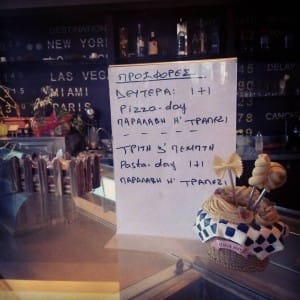 DESTINATION
NEW YORK
TO
LAS VEGA
MIAMI
PARIS
DELAY
CANCEL
ΠΡΟΣΦΟΡΕΣ
ΔΕΥΤΕΡΑ: 1+1
Pizza-day
ΠΑΡΑΛΑΒΗ Η' ΤΡΑΠΕΖΙ
ΤΡΙΤΗ & ΠΕΜΠΤΗ
Pasta-day 1+1
ΠΑΡΑΛΑΒΗ Η' ΤΡΑΠΕΖΙ